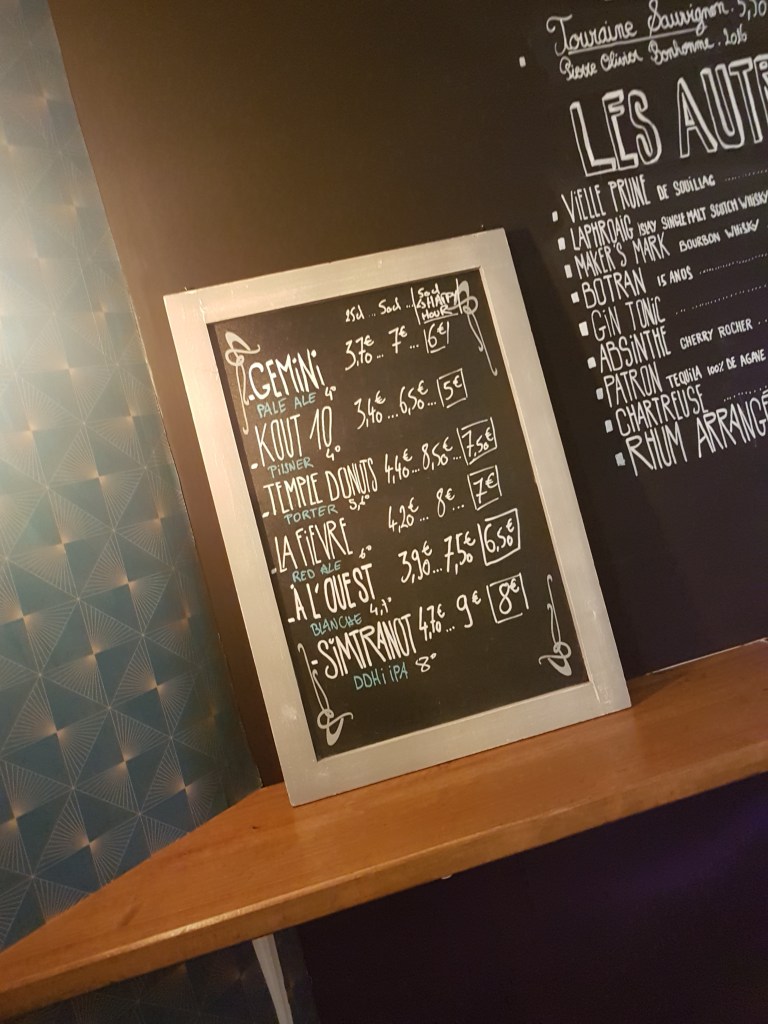 Touraine Sauvignon . 5,50
Pierre Olivier Bonhomme . 2016
LES AUTR
VIELLE PRUNE DE SOUILLAC
LAPHROAIG ISLAY SINGLE MALT SCOTCH WHISKY
MAKER'S MARK BOURBON WHISKY
BOTRAN 15 ANOS
GIN TONIC
ABSINTHE CHERRY ROCHER
PATRON TEQUILA 100% DE AGAVE
CHARTREUSE
RHUM ARRANGÉ
25cl ... 50cl ... 50cl HAPPY HOUR
- GEMINI 3,70€ ... 7€ ... 6€
PALE ALE 4°
- KOUT 10 3,40€ ... 6,50€ ... 5€
PILSNER 4°
- TEMPLE DONUTS 4,40€ ... 8,50€ ... 7,50€
PORTER
- LA FIEVRE 4,20€ ... 8€ ... 7€
RED ALE 6°
- À L'OUEST 3,90€ ... 7,50€ 6,50€
BLANCHE
- SIMTRANOT 4,70€ ... 9€ 8€
DDH IPA 8°